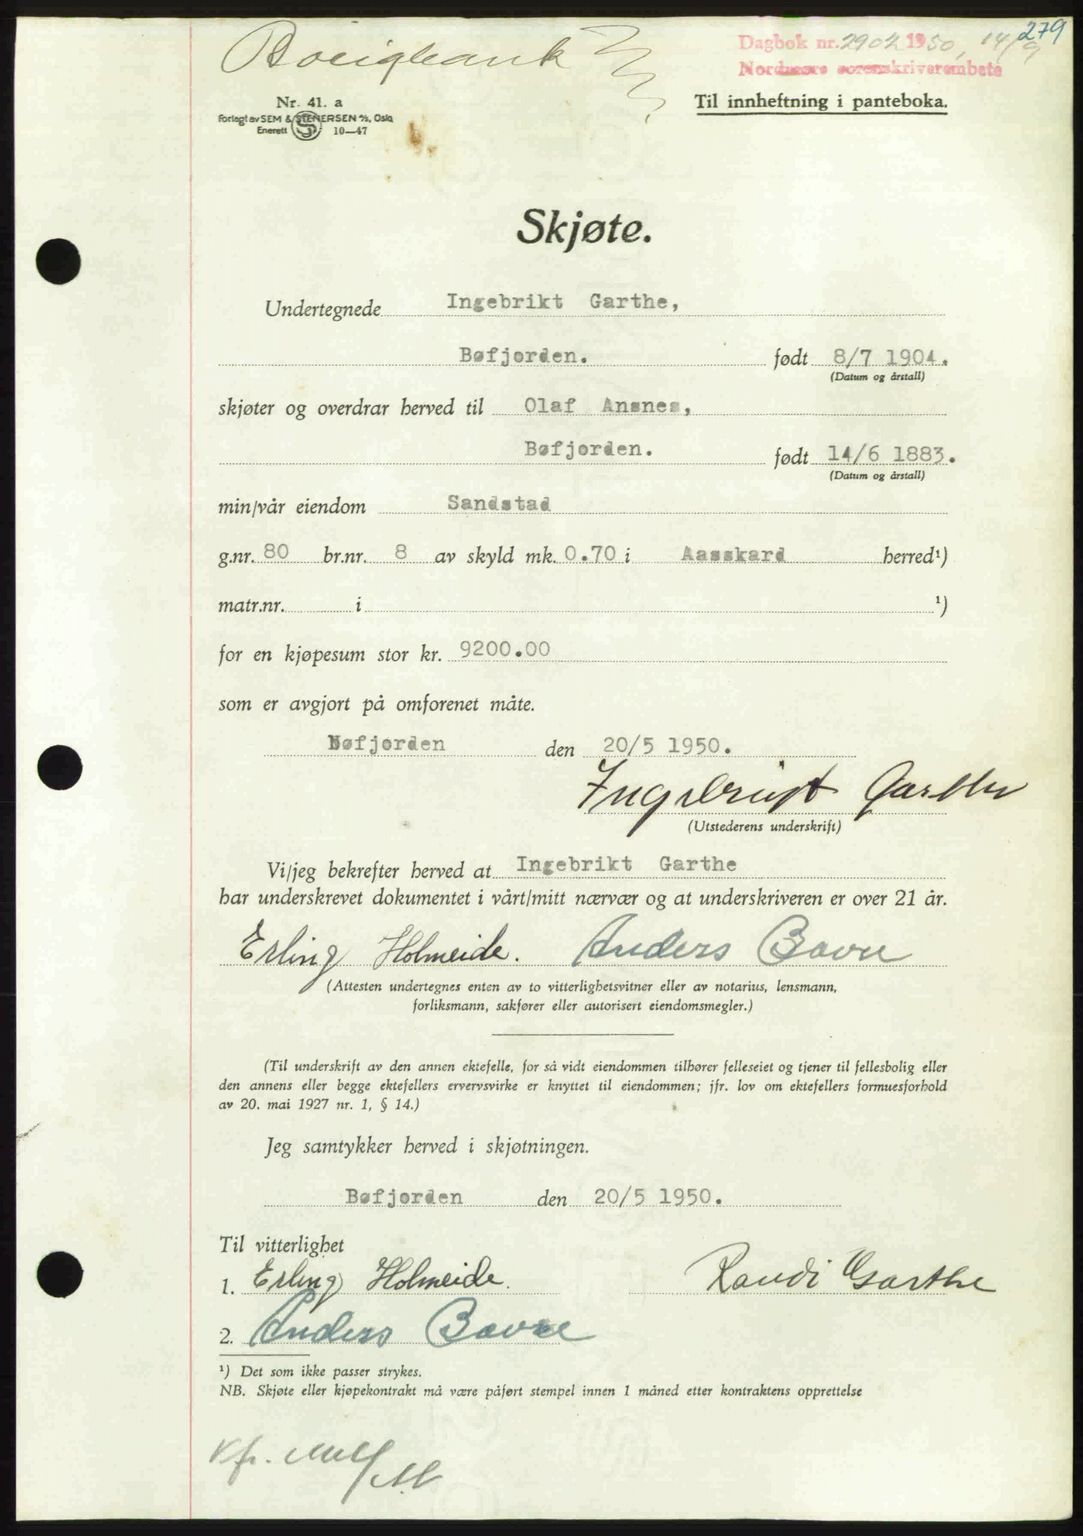 279
Boligbank
Dagbok nr. 2902 1950, 14/9
Nordmøre sorenskriverembete
Nr. 41. a
Til innheftning i panteboka.
Forlagt av SEM & STENERSEN A/S, Oslo
Enerett 10—47
Skjøte.
Undertegnede Ingebrikt Garthe,
Bøfjorden. født 8/7 1904.
(Datum og årstall)
skjøter og overdrar herved til Olaf Ansnes,
Bøfjorden. født 14/6 1883.
(Datum og årstall)
min/vår eiendom Sandstad
g.nr. 80 br.nr. 8 av skyld mk. 0.70 i Aasskard herred¹)
matr.nr. i ¹)
for en kjøpesum stor kr. 9200.00
som er avgjort på omforenet måte.
Bøfjorden den 20/5 1950.
Ingebrigt Garthe
(Utstederens underskrift)
Vi/jeg bekrefter herved at Ingebrikt Garthe
har underskrevet dokumentet i vårt/mitt nærvær og at underskriveren er over 21 år.
Erling Holmeide. Anders Bøvre
(Attesten undertegnes enten av to vitterlighetsvitner eller av notarius, lensmann,
forliksmann, sakfører eller autorisert eiendomsmegler.)
(Til underskrift av den annen ektefelle, for så vidt eiendommen tilhører felleseiet og tjener til fellesbolig eller
den annens eller begge ektefellers ervervsvirke er knyttet til eiendommen; jfr. lov om ektefellers formuesforhold
av 20. mai 1927 nr. 1, § 14.)
Jeg samtykker herved i skjøtningen.
Bøfjorden den 20/5 1950.
Til vitterlighet
1. Erling Holmeide. Randi Garthe
2. Anders Bøvre
¹) Det som ikke passer strykes.
NB. Skjøte eller kjøpekontrakt må være påført stempel innen 1 måned etter kontraktens opprettelse
Kfr.